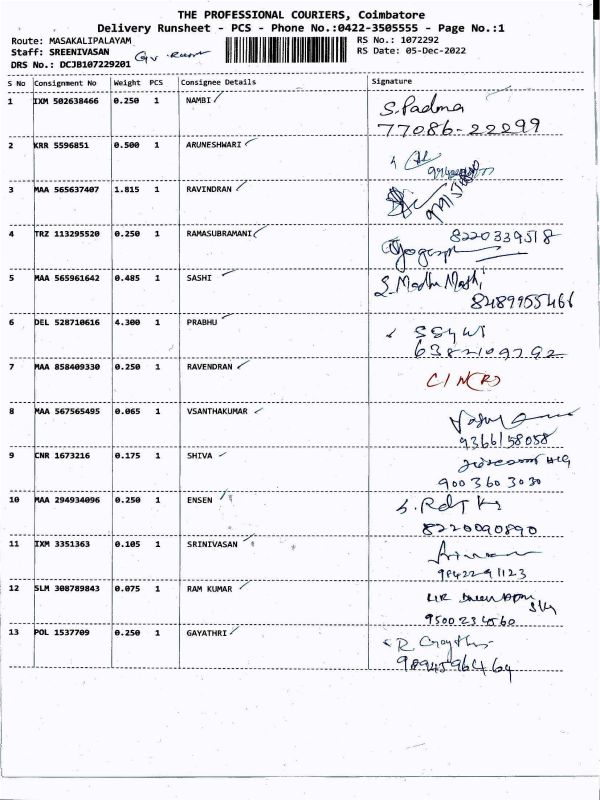 THE PROFESSIONAL COURIERS, Coimbatore
Delivery Runsheet - PCS - Phone No.:0422-3505555 - Page No.:1
Route: MASAKALIPALAYAM RS No.: 1072292
Staff: SREENIVASAN RS Date: 05-Dec-2022
DRS No.: DCJB107229201
S No Consignment No Weight PCS Consignee Details Signature
1 IXM 502638466 0.250 1 NAMBI S. Padma
77086-22299
2 KRR 5596851 0.500 1 ARUNESHWARI
3 MAA 565637407 1.815 1 RAVINDRAN
4 TRZ 113295520 0.250 1 RAMASUBRAMANI 8220339518
5 MAA 565961642 0.485 1 SASHI
8489955466
6 DEL 528710616 4.300 1 PRABHU
6382109792
7 MAA 858409330 0.250 1 RAVENDRAN
8 MAA 567565495 0.065 1 VSANTHAKUMAR
9366158058
9 CNR 1673216 0.175 1 SHIVA
900 360 3030
10 MAA 294934096 0.250 1 ENSEN
8220090890
11 IXM 3351363 0.105 1 SRINIVASAN
98422 91123
12 SLM 308789843 0.075 1 RAM KUMAR
9500234560
13 POL 1537709 0.250 1 GAYATHRI